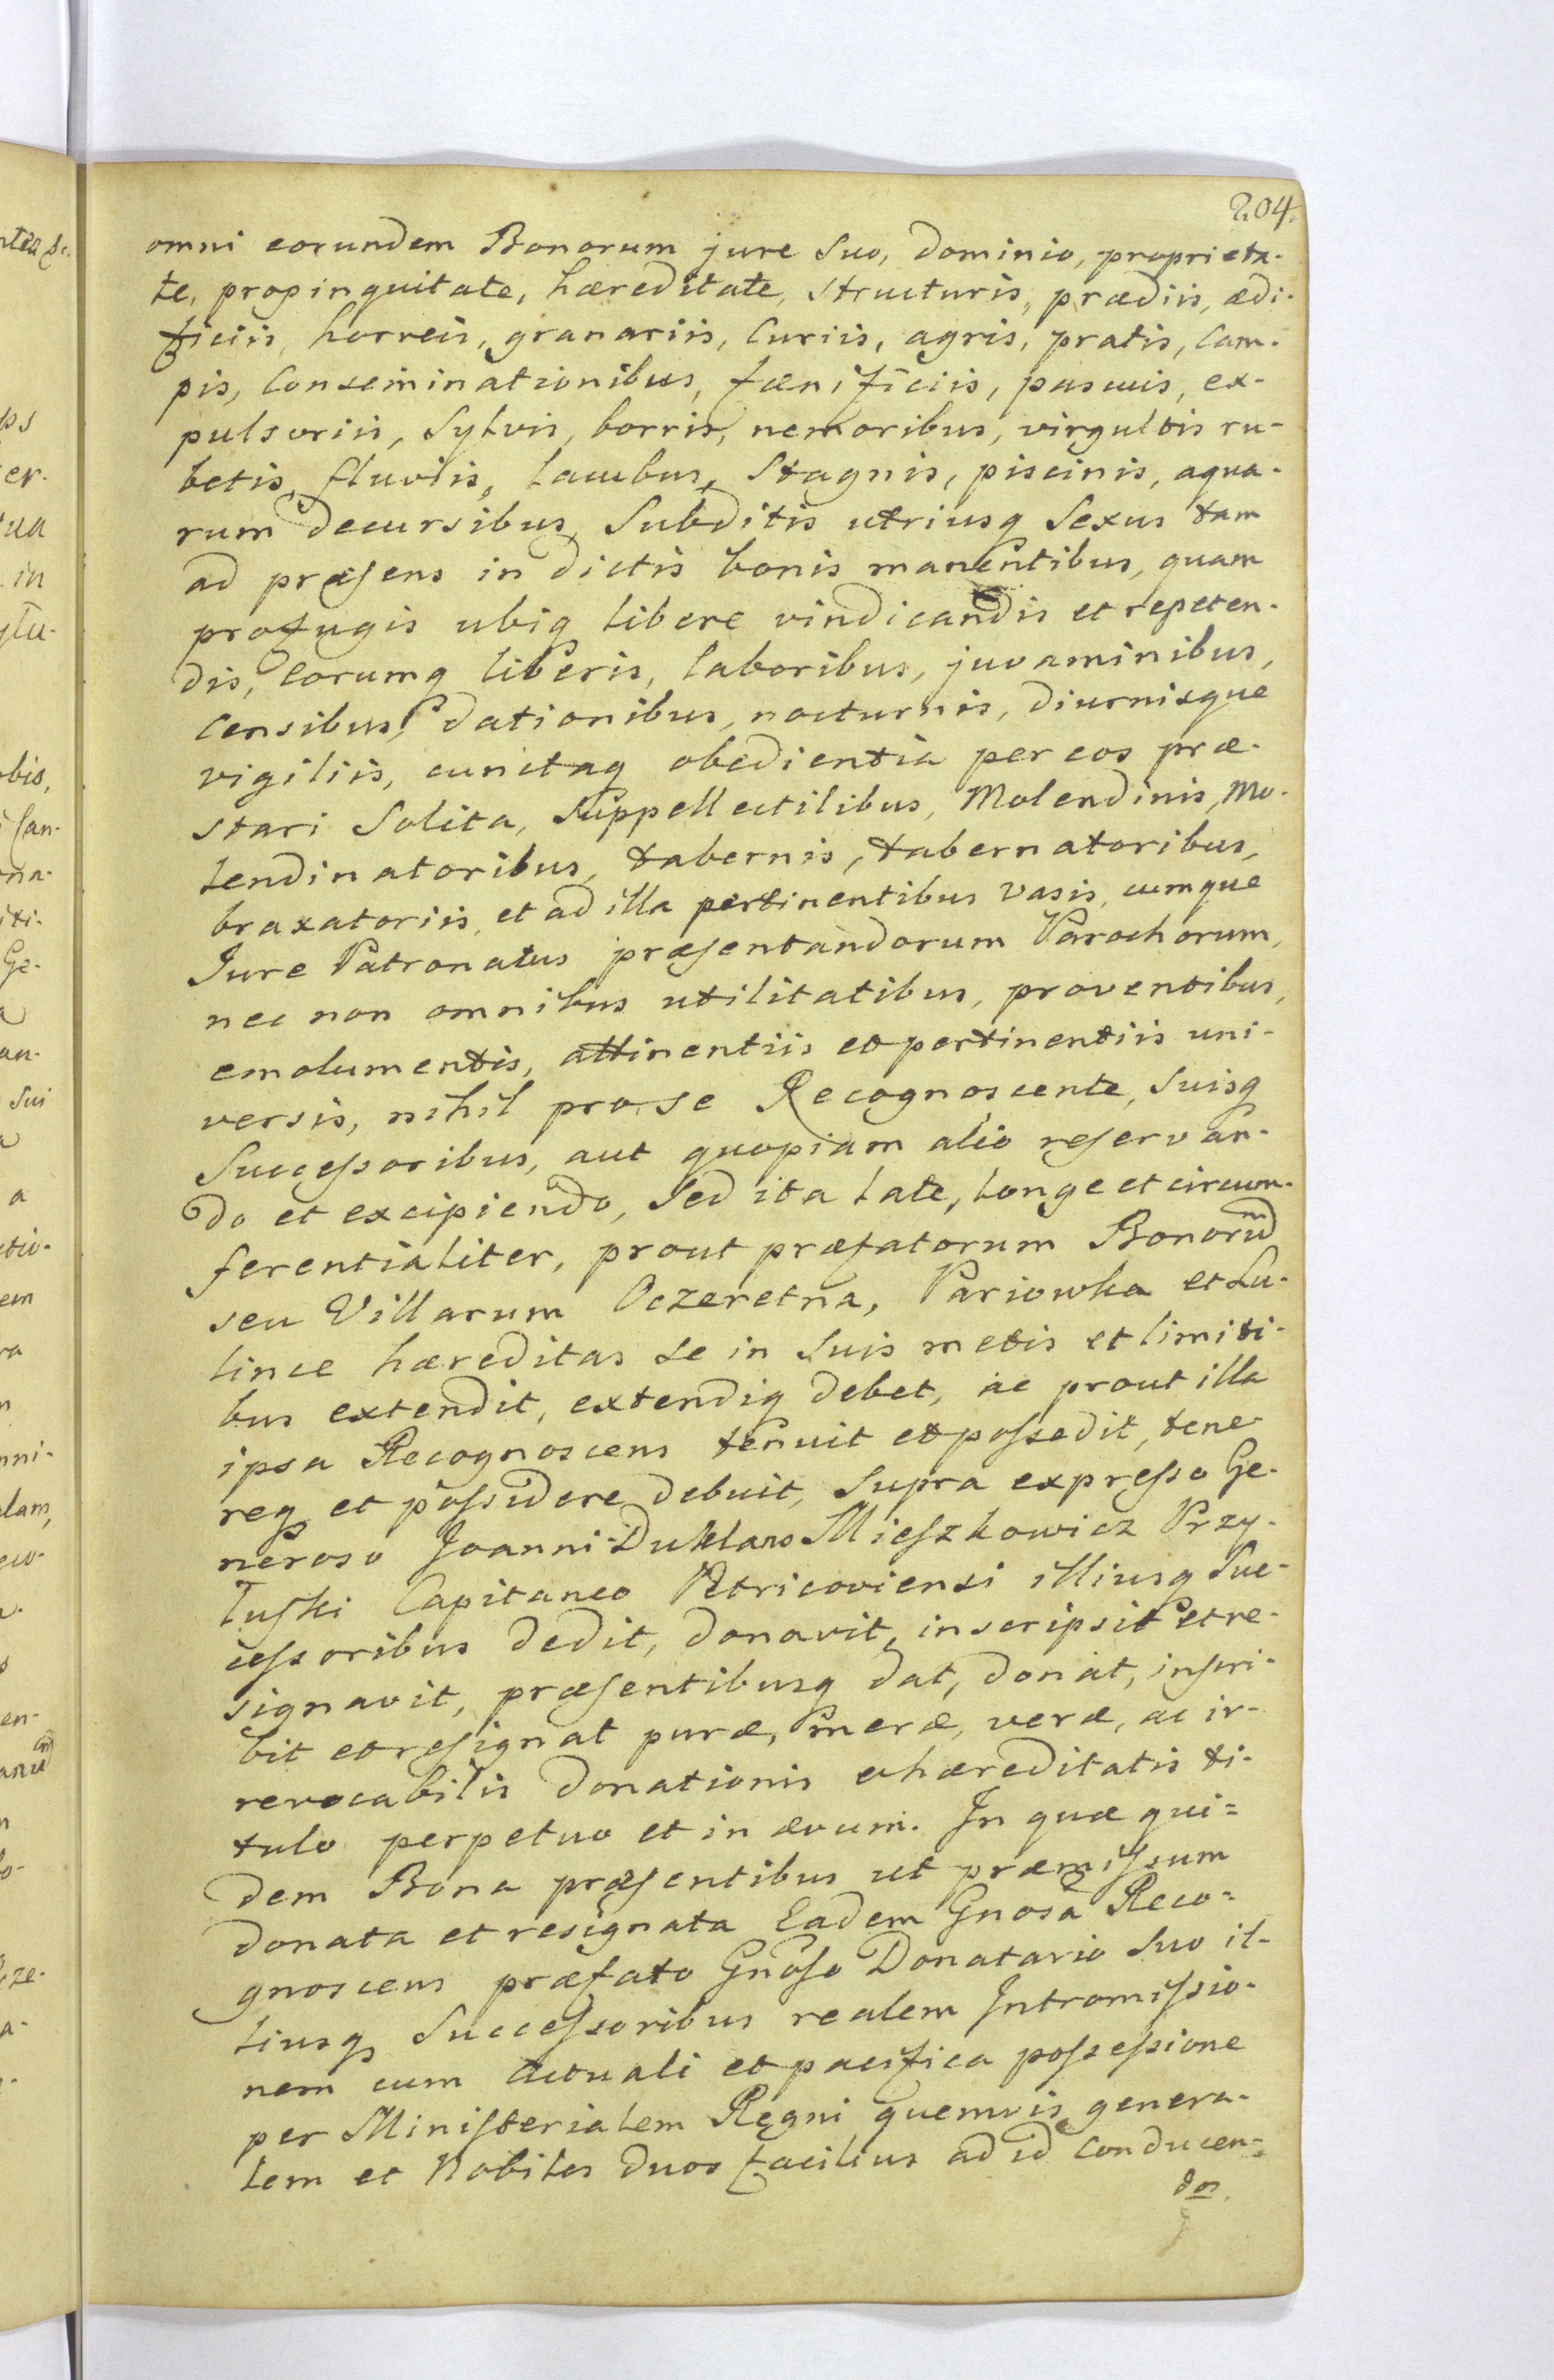 204.
omni eorundem Bonorum jure suo, dominio, proprieta-
te, propinquitate, hæreditate, structuris, prædiis, ædi-
ficiis, horreis, granariis, Curiis, agris, pratis, Cam-
pis, Conseminationibus, fænificiis, pascuis, ex-
pulsoriis, Sylvis, borris, nemoribus, virgultis ru-
betis, fluviis, lacubus, Stagnis, piscinis, aqua-
rum decursibus, Subditis utriusq Sexus tam
ad præsens in dictis bonis manentibus, quam
profugis ubiq libere vindicandis et repeten-
dis, Eorumq liberis, laboribus, juvaminibus,
Censibus, dationibus, nocturnis, diurnisque
vigiliis, cunctaq obedientia per eos præ-
stari Solita, Suppellectilibus, Molendinis, Mo-
lendinatoribus, tabernis, tabernatoribus,
braxatoriis, et ad illa pertinentibus Vasis, cumque
Jure Patronatus præsentandorum Parochorum,
nec non omnibus utilitatibus, proventibus,
emolumentis, attinentiis et pertinentiis uni-
versis, nihil pro se Recognoscente, suisq
Successoribus, aut quopiam alio reservan-
do et excipiendo, Sed ita late, longe et circum-
ferentialiter, prout præfatorum Bonorũ
seu Villarum Oczeretna, Pariowka et Lu-
lince hæreditas se in Suis metis et limiti-
bus extendit, extendiq debet, ac prout illa
ipsa Recognoscens tenuit et possedit, tene-
req et possidere debuit, Supra expresso Ge-
neroso Joanni Duklano Mieszkowicz Przy-
łuski Capitaneo Petricoviensi illiusq Suc-
cessoribus dedit, donavit, inscripsit et re-
signavit, præsentibusq dat, donat, inscri-
bit et resignat puræ, meræ, veræ, ac ir-
revocabilis donationis et hæreditatis ti-
tulo perpetuo et in ævum. In quæ qui=
dem Bona præsentibus ut præmissum
donata et resignata Eadem Gnosa Reco=
gnoscens præfato Gnoso Donatario Suo il-
liusq Successoribus realem Intromissio-
nem cum actuali et pacifica possessione
per Ministerialem Regni quemvis genera-
lem et Nobiles duos facilius ad id Conducen-
dos.